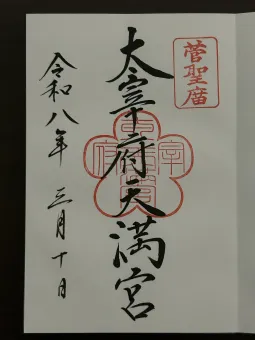 菅聖廟
太宰府天満宮
令和八年 三月十日